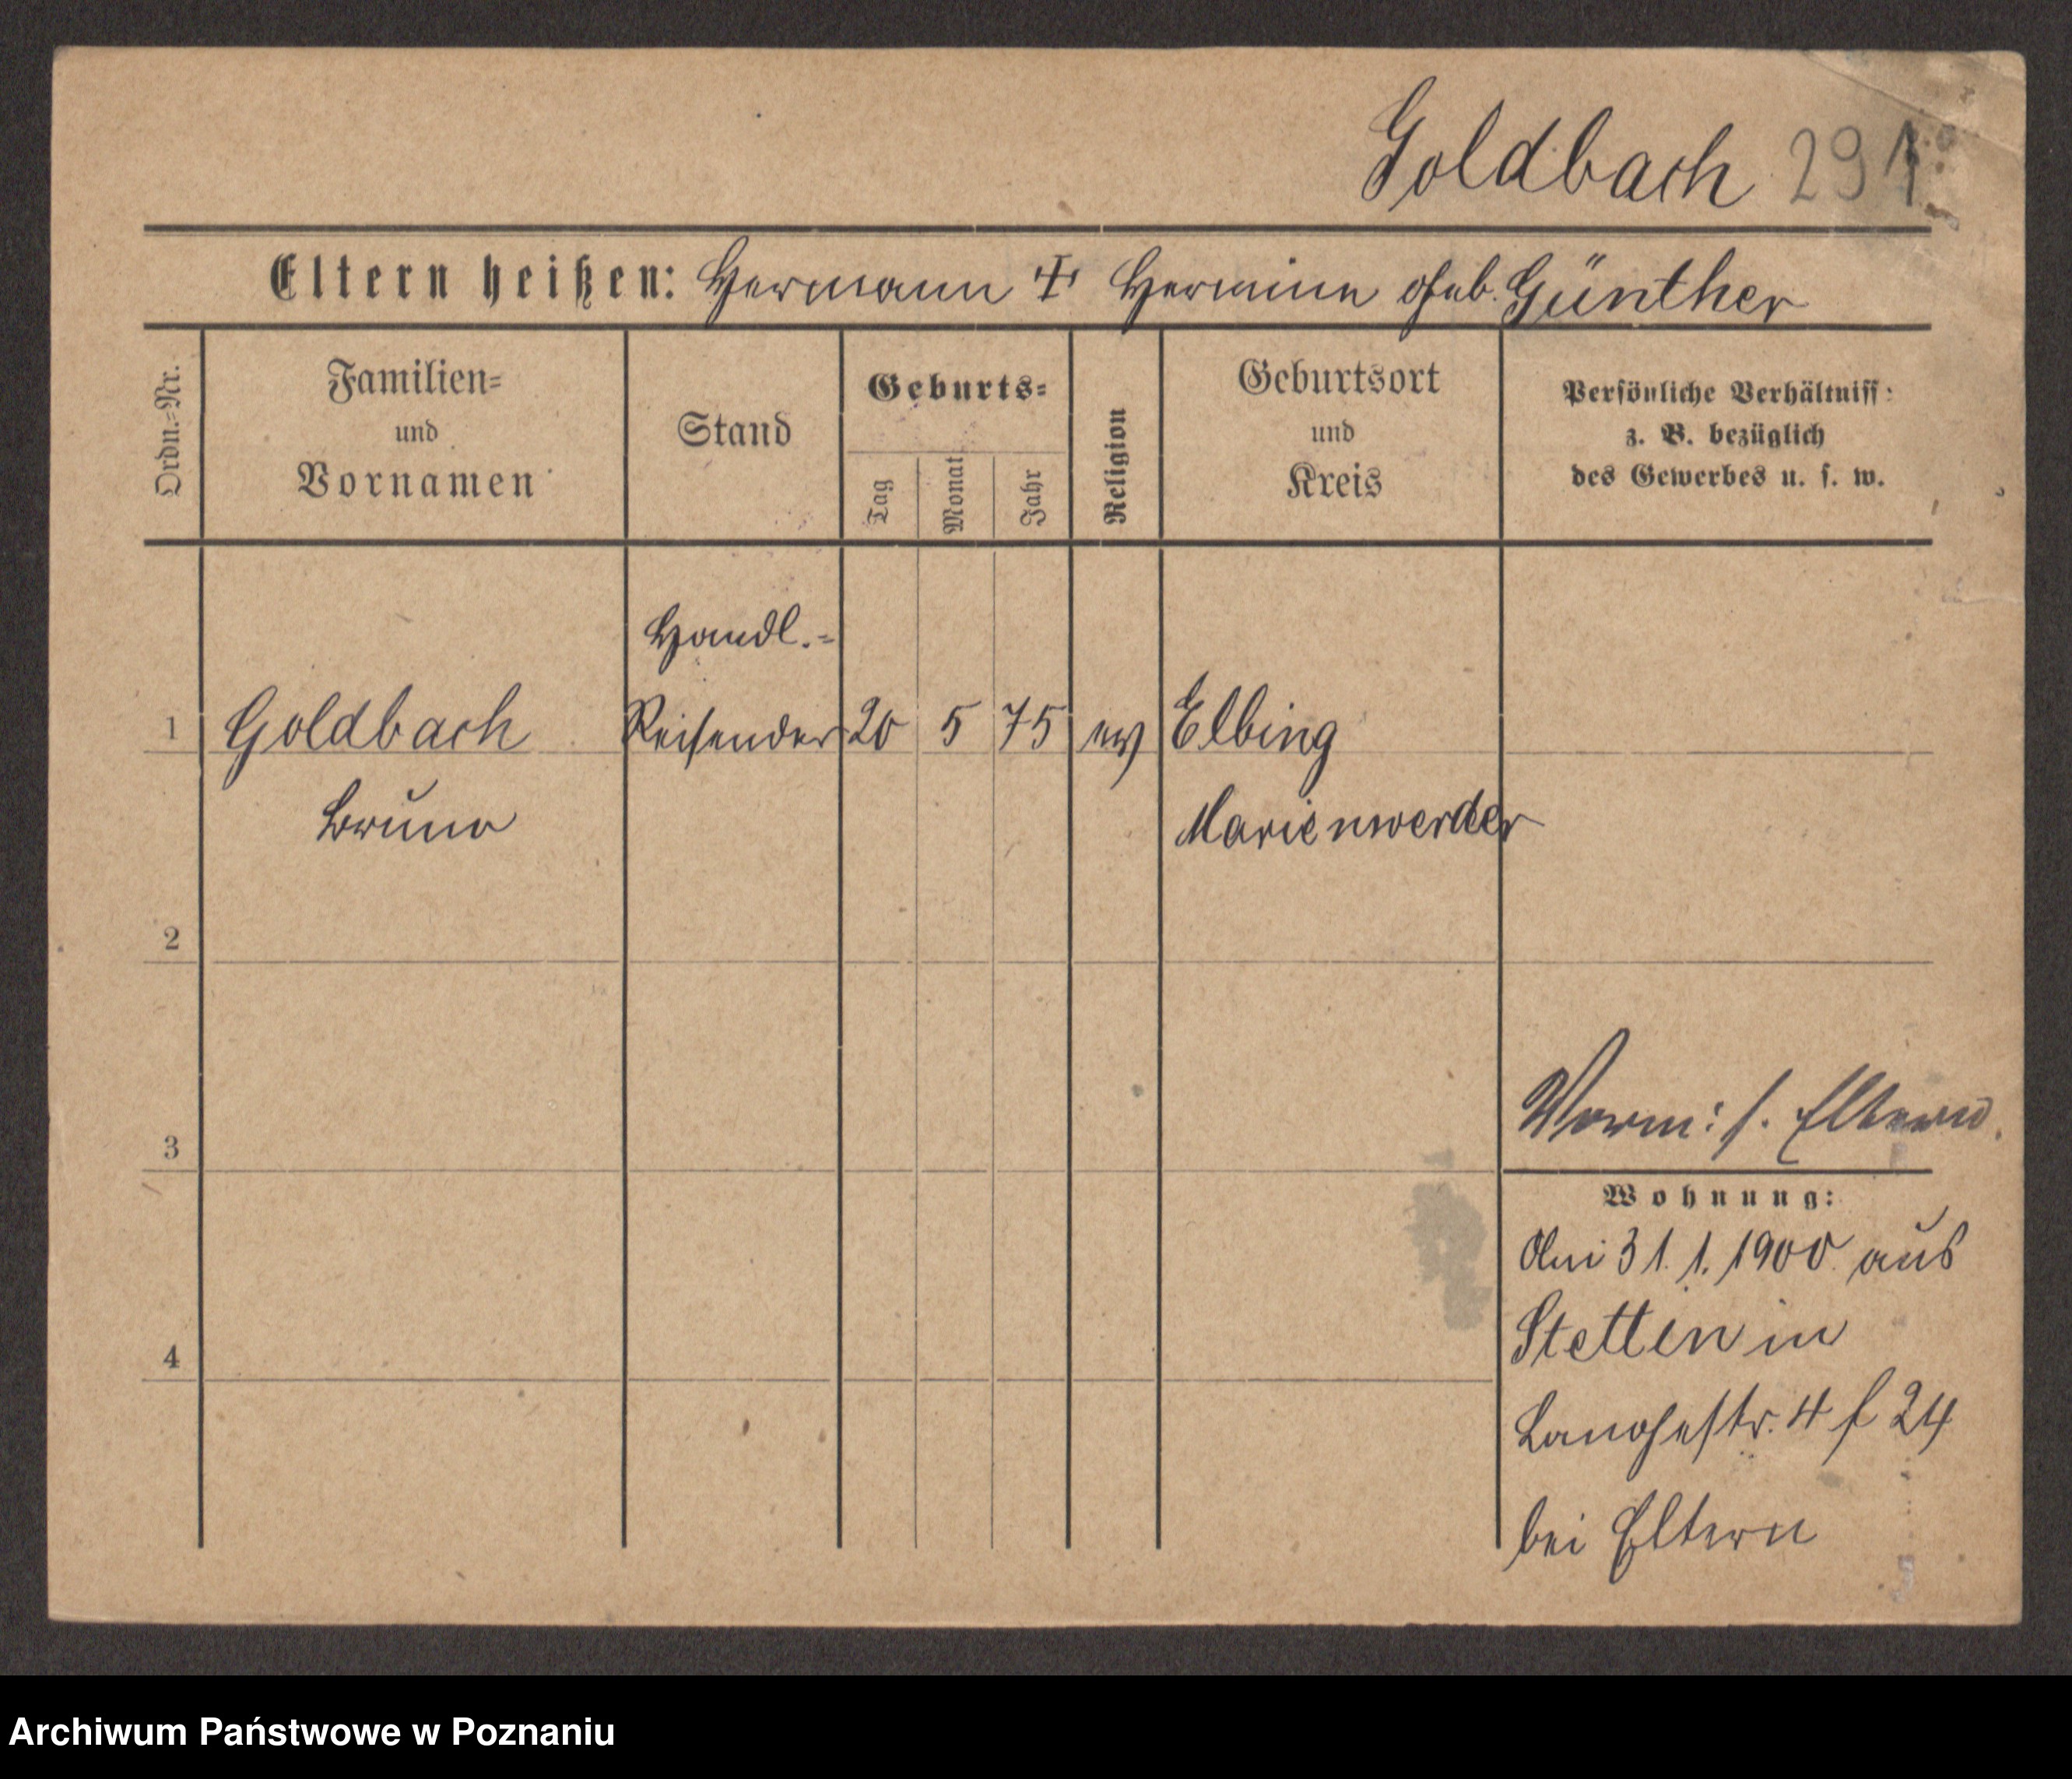 Goldbach 291
Eltern heißen: Hermann † Hermine geb. Günther
Ordn.=Nr.
Familien=
und
Vornamen
Stand
Geburts=
Tag
Monat
Jahr
Religion
Geburtsort
und
Kreis
Persönliche Verhältniss:
z. B. bezüglich
des Gewerbes u. s. w.
Handl.=
1 Goldbach Reisender 20 5 75 ev Elbing
Bruno Marienwerder
2
3
Verm: s. Eltern.
Wohnung:
4
31. 1. 1900 aus
Stettin in
Langestr. 4 f 24
bei Eltern
Archiwum Państwowe w Poznaniu